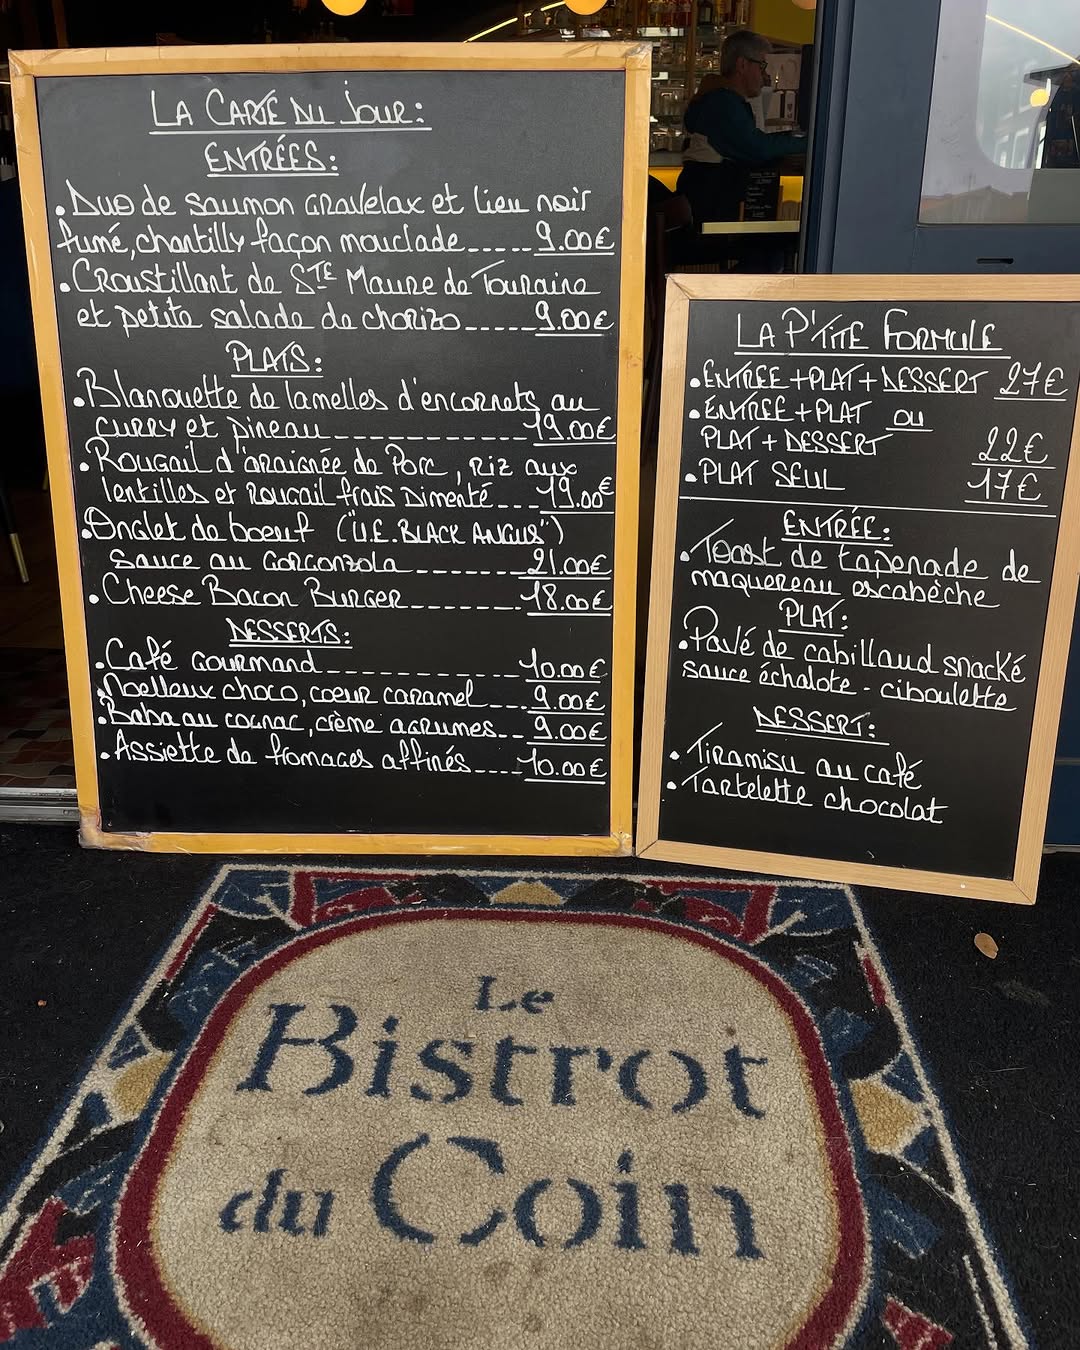 LA CARTE DU JOUR:
ENTRÉES:
• Duo de saumon GRAVELAX et lieu noir
fumé, chantilly façon mouclade_____ 9.00€
• Croustillant de STE Maure de Touraine
et petite salade de chorizo_____ 9.00€
PLATS:
• Blanquette de lamelles d'encornets au
CURRY et pineau____________ 19.00€
• Rougail d'araignée de Porc, riz aux
lentilles et rougail frais Dimenté___ 19.00€
• Onglet de boeuf ("U.E. BLACK ANGUS")
Sauce au Gorgonzola_________ 21.00€
• Cheese Bacon Burger________ 18.00€
DESSERTS:
• Café Gourmand____________ 10.00€
• Moelleux choco, coeur caramel___ 9.00€
• Baba au cognac, crème agrumes__ 9.00€
• Assiette de fromages affinés____ 10.00€
LA P'TITE FORMULE
• ENTREE+PLAT+DESSERT 27€
• ENTRÉE+PLAT OU
PLAT+DESSERT 22€
• PLAT SEUL 17€
ENTRÉE:
• Toast de tapenade de
maquereau escabèche
PLAT:
• Pavé de cabillaud snacké
sauce échalote - ciboulette
DESSERT:
• Tiramisu au café
• Tartelette chocolat
Le
Bistrot
du Coin